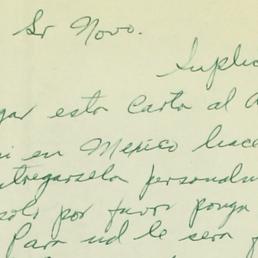 Sr Novo.
Suplic
gar esta Carta al A
i en Mexico hace
ntregarsela personalm
solo por favor ponga
Para ud le sera f